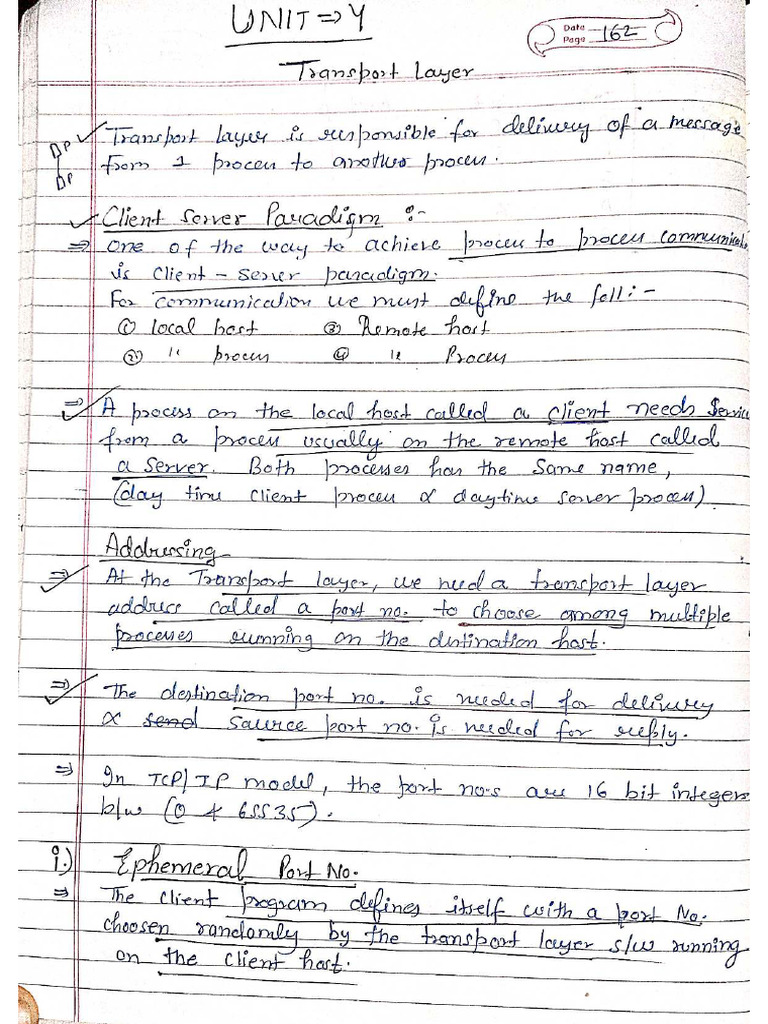 UNIT ⇒ 4
Date
Page 162
Transport Layer
DP
DP
✓ Transport layer is responsible for delivery of a message
from 1 process to another process.
✓ Client Server Paradigm :-
⇒ One of the way to achieve process to process communicatn
is Client - Server paradigm.
For communication we must define the foll:-
① local host ③ Remote host
② " process ④ " Process
⇒ A process on the local host called a client needs Service
from a process usually on the remote host called
a server. Both processes has the same name,
(day time client process & daytime server process)
Addressing
⇒ At the Transport layer, we need a transport layer
address called a port no. to choose among multiple
processes running on the destination host.
⇒ The destination port no. is needed for delivery
& send source port no. is needed for reply.
⇒ In TCP/IP model, the port no.s are 16 bit integers
b/w (0 & 65535).
i.) Ephemeral Port No.
⇒ The client program defines itself with a port No.
choosen randomly by the transport layer s/w running
on the client host.